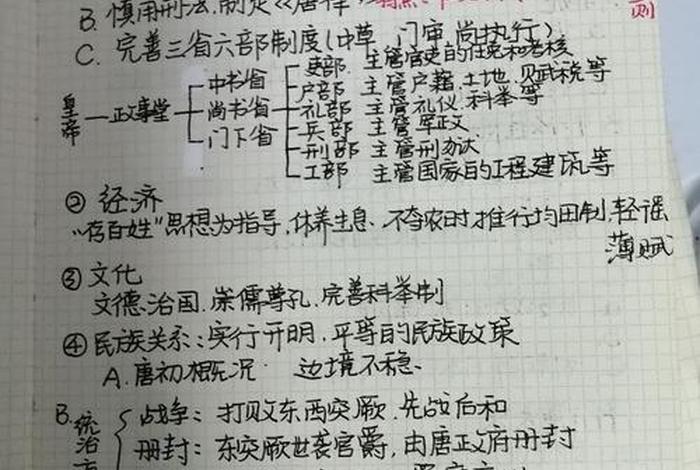 B. 慎用刑法,制定《唐律》
则
C. 完善三省六部制度(中草 门审 尚执行)
吏部 主管官吏的任免和考核
中书省 户部 主管户籍、土地、贝武税等
皇帝 — 政事堂 尚书省 礼部 主管礼仪、科举等
门下省 兵部 主管军政
刑部 主管刑办法
工部 主管国家的工程建筑等
② 经济
"存百姓"思想为指导,休养生息、不夺农时,推行均田制,轻徭
薄赋
③ 文化
文德治国、崇儒尊孔、完善科举制
④ 民族关系:实行开明、平等的民族政策
A. 唐初概况 边境不稳
B. 战争:打败东西突厥、先战后和
统治 册封:东突厥世袭官爵,由唐政府册封